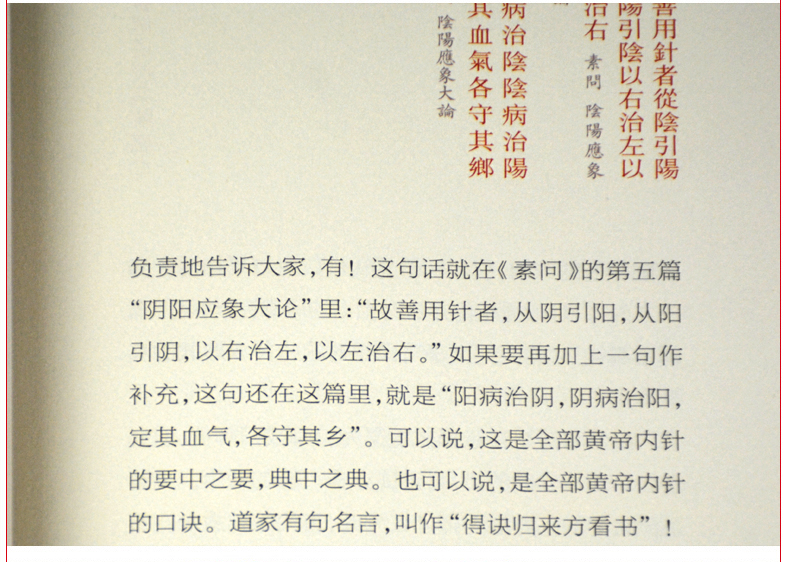 善用針者從陰引陽
陽引陰以右治左以
治右 素問 陰陽應象
病治陰陰病治陽
其血氣各守其鄉
陰陽應象大論
负责地告诉大家，有！这句话就在《素问》的第五篇
“阴阳应象大论”里：“故善用针者，从阴引阳，从阳
引阴，以右治左，以左治右。”如果要再加上一句作
补充，这句还在这篇里，就是“阳病治阴，阴病治阳，
定其血气，各守其乡”。可以说，这是全部黄帝内针
的要中之要，典中之典。也可以说，是全部黄帝内针
的口诀。道家有句名言，叫作“得诀归来方看书”！